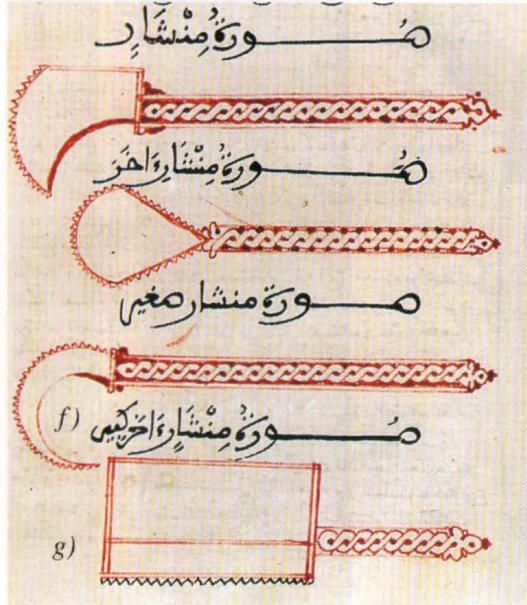 صورة مِنْشَارٍ
صورةُ مِنْشَارٍ اخَرَ
صورة منشار صغير
f)
صورةُ مِنْشَارٍ اخَر كبير
g)